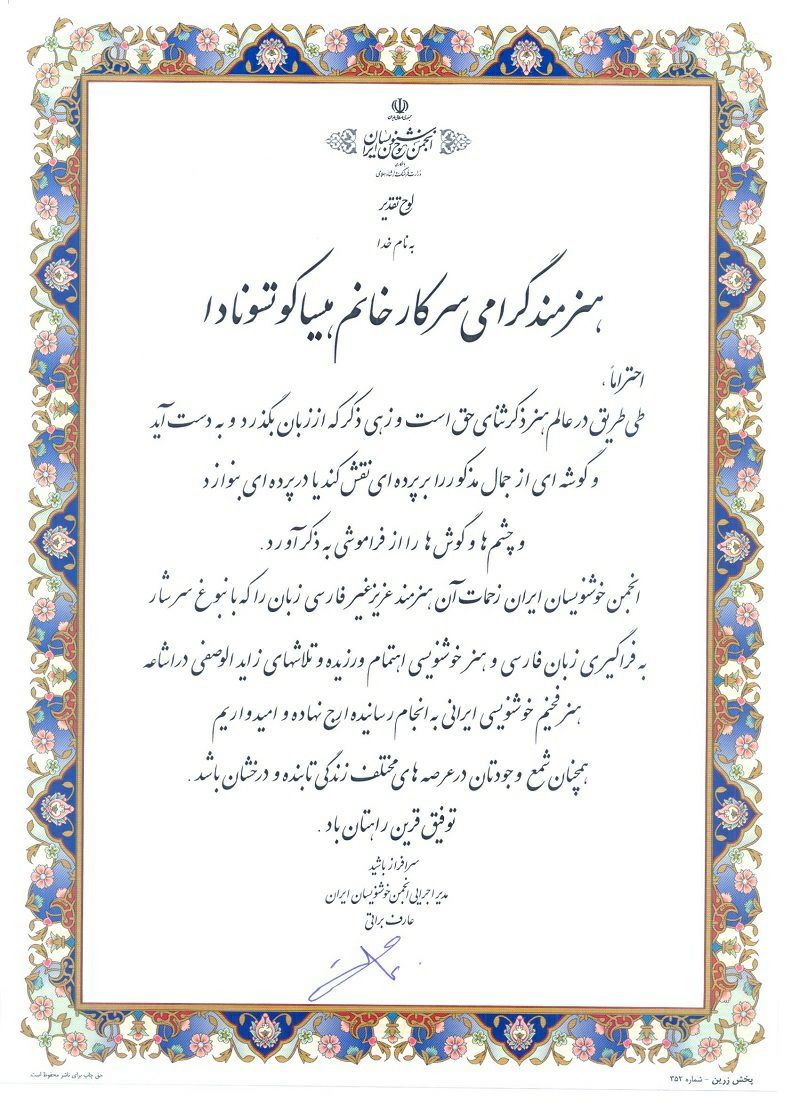 جمهوری اسلامی ایران
انجمن خوشنویسان ایران
وزارت فرهنگ و ارشاد اسلامی
لوح تقدیر
به نام خدا
هنرمند گرامی سرکار خانم هیسا کو تسونادا
احتراماً ،
طی طریق در عالم هنر ذکر ثنای حق است و زهی ذکر که از زبان بگذرد و به دست آید
و گوشه ای از جمال مذکور را بر پرده ای نقش کند یا در پرده ای بنوازد
و چشم ها و گوش ها را از فراموشی به ذکر آورد .
انجمن خوشنویسان ایران زحمات آن هنرمند عزیز غیر فارسی زبان را که با نبوغ سرشار
به فراگیری زبان فارسی و هنر خوشنویسی اهتمام ورزیده و تلاشهای زاید الوصفی در اشاعه
هنر فخیم خوشنویسی ایرانی به انجام رسانیده ارج نهاده و امیدواریم
همچنان شمع وجودتان در عرصه های مختلف زندگی تابنده و درخشان باشد .
توفیق قرین راهتان باد .
سرافراز باشید
مدیر اجرایی انجمن خوشنویسان ایران
عارف براتی
پخش زرین - شماره ۳۵۲
حق چاپ برای ناشر محفوظ است